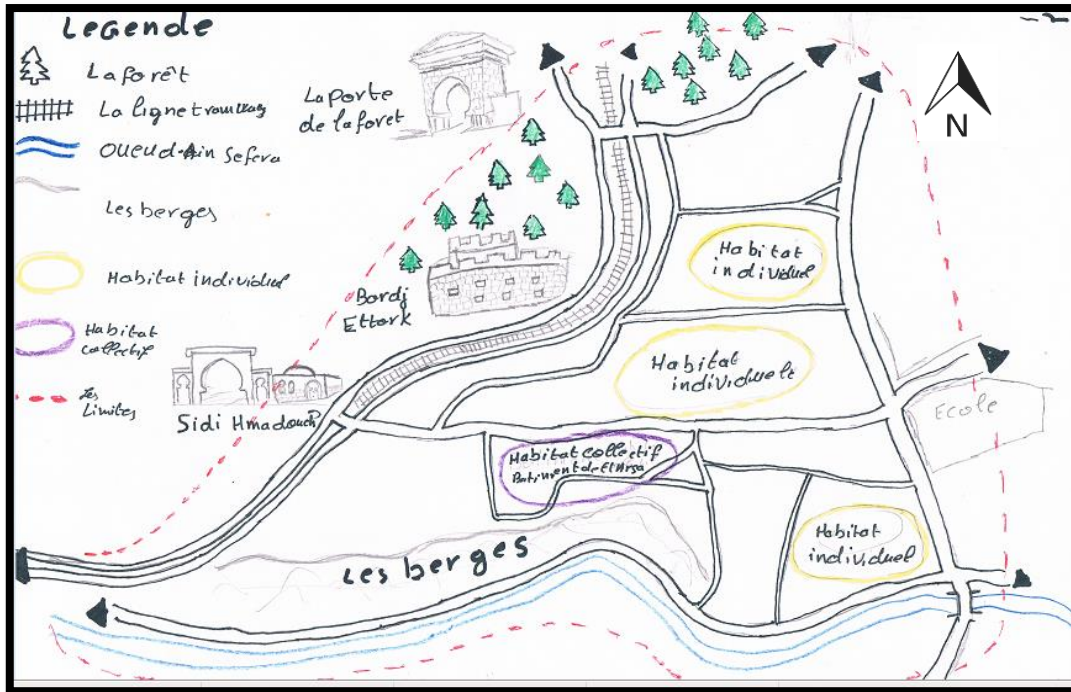 Legende
La forêt
La ligne tramway
Oueud-Ain Sefera
Les berges
Habitat individuel
Habitat
collectif
Les
Limites
La Porte
de la foret
N
Bordj
Ettork
Sidi Hmadouch
Habitat
individuel
Habitat
individuele
Ecole
Habitat collectif
Batiment de El Arsa
Habitat
individuel
Les berges